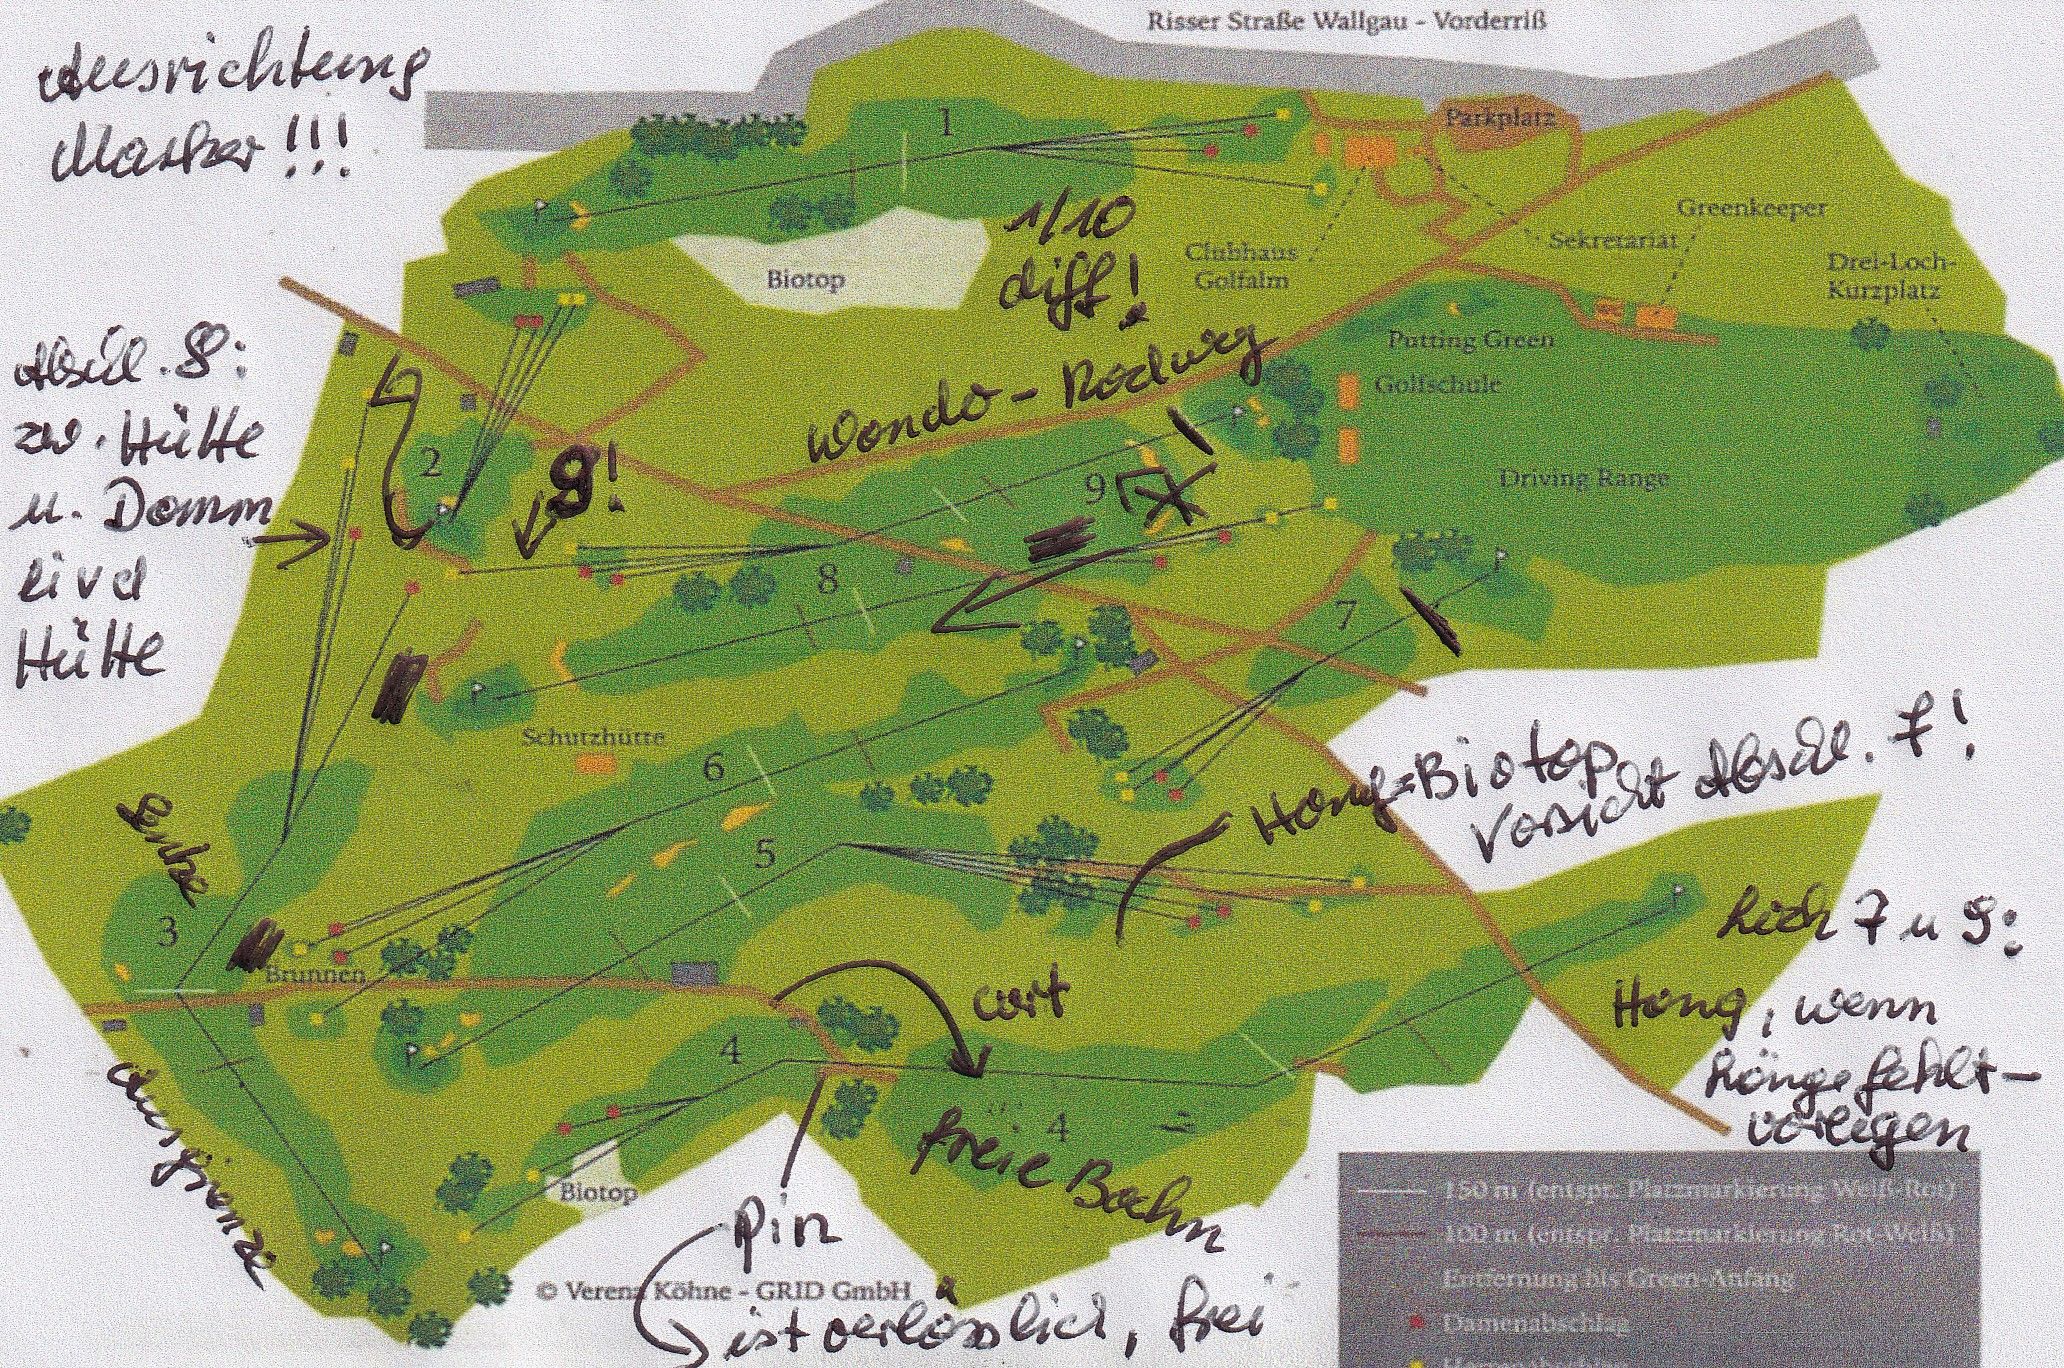 Risser Straße Wallgau - Vorderriß
Ausrichtung
Marker!!!
1
Parkplatz
Greenkeeper
1/10
diff!
Sekretariat
Clubhaus
Golfalm
Biotop
Drei-Loch-
Kurzplatz
Putting Green
Golfschule
Abschl. 9:
zw. Hütte
u. Damm
livel
Hütte
Wander-Radweg
2
9!
9
Driving Range
8
7
Schutzhütte
6
Hang=Biotop
Vorsicht Abschl. 7!
5
Senke
3
Brunnen
Rich 7 u 9:
Hang, wenn
Länge fehlt-
vorlegen
cart
4
4
freie Bahn
Ausgrenze
Biotop
Pin
ist verlässlich, frei
© Verena Köhne - GRID GmbH
150 m (entspr. Platzmarkierung Weiß-Rot)
100 m (entspr. Platzmarkierung Rot-Weiß)
Entfernung bis Green-Anfang
Damenabschlag
Herrenabschlag